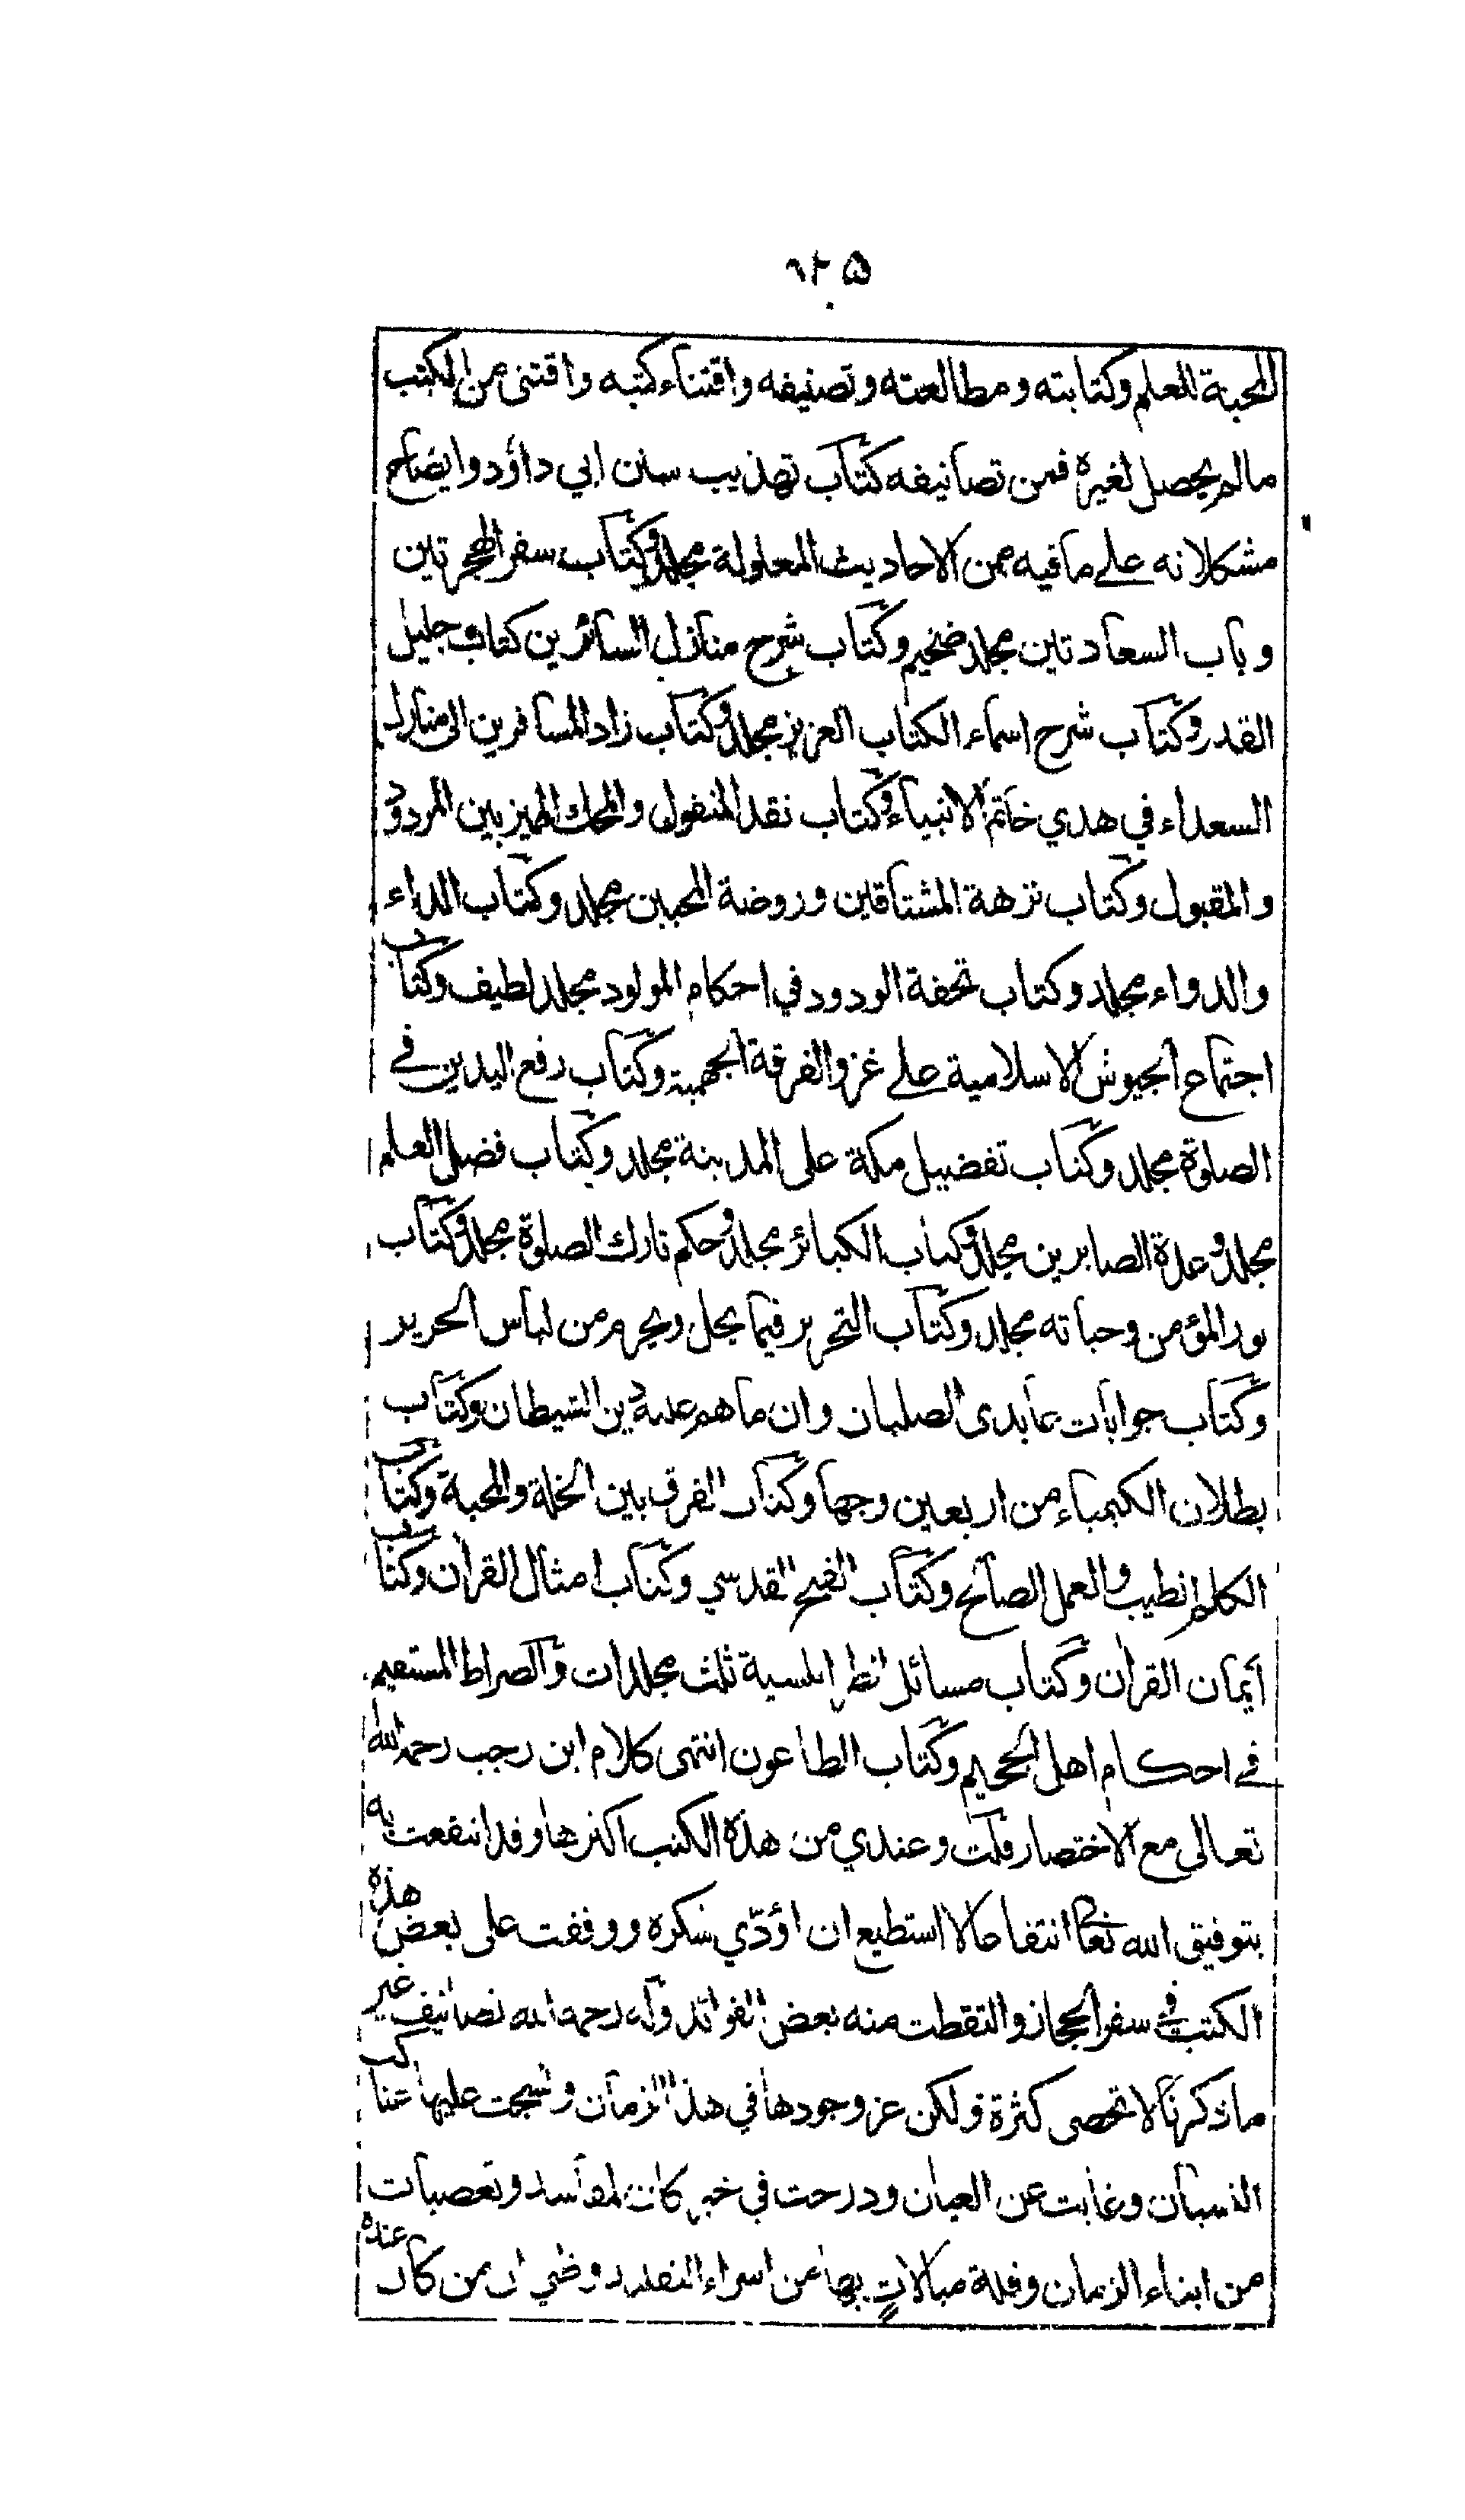 ٦٢٥
المحبة للعلم وكتابته ومطالعته وتصنيفه واقتناء كتبه واقتنى من الكتب
مالم يحصل لغيرة فمن تصانيفه كتاب تهذيب سنن ابي داؤد وايضاح
مشكلاته على مافيه من الاحاديث المعلولة مجلد وكتاب سفر الهجرتين
وباب السعادتين مجلد ضخيم وكتاب شرح منازل السائرين كتاب جليل
القدر وكتاب شرح اسماء الكتاب العزيز مجلد وكتاب زاد المسافرين الى منازل
السعداء في هدي خاتم الانبياء وكتاب نقد المنقول والمحك المميز بين المردود
والمقبول وكتاب نزهة المشتاقين وروضة المحبين مجلد وكتاب الداء
والدواء مجلد وكتاب تحفة الودود في احكام المولود مجلد لطيف وكتاب
اجتماع الجيوش الاسلامية على غزو الفرقة الجهمية وكتاب رفع اليدين في
الصلوة مجلد وكتاب تفضيل مكة على المدينة مجلد وكتاب فضل العلم
مجلد وعدة الصابرين مجلد وكتاب الكبائر مجلد وحكم تارك الصلوة مجلد وكتاب
نور المؤمن وحياته مجلد وكتاب التحرير فيما يحل ويحرم من لباس الحرير
وكتاب جوابات عابدى الصلبان وان ماهم عليه دين الشيطان وكتاب
بطلان الكيمياء من اربعين وجها وكتاب الفرق بين الخلة والمحبة وكتاب
الكلم الطيب والعمل الصالح وكتاب الفتح القدسي وكتاب امثال القران وكتاب
أيمان القران وكتاب مسائل الطرابلسية ثلث مجلدات والصراط المستقيم
في احكام اهل الجحيم وكتاب الطاعون انتهى كلام ابن رجب رحمه الله
تعالى مع الاختصار قلت وعندي من هذه الكتب اكثرها وقد انتفعت به
بتوفيق الله تعالى انتفاعا لا استطيع ان اؤدّي شكره ووقفت على بعض هذه
الكتب في سفر الحجاز والتقطت منه بعض الفوائد وله رحمه الله تصانيف غير
ماذكرنا لا تحصى كثرة ولكن عز وجودها في هذا الزمان ونسجت عليها عناكب
النسيان وغابت عن العيان ودرجت في خبر كان لمفاسد وتعصبات
من ابناء الزمان وقلة مبالاتٍ بها من اسراء التقليد وظني ان من كان عنده